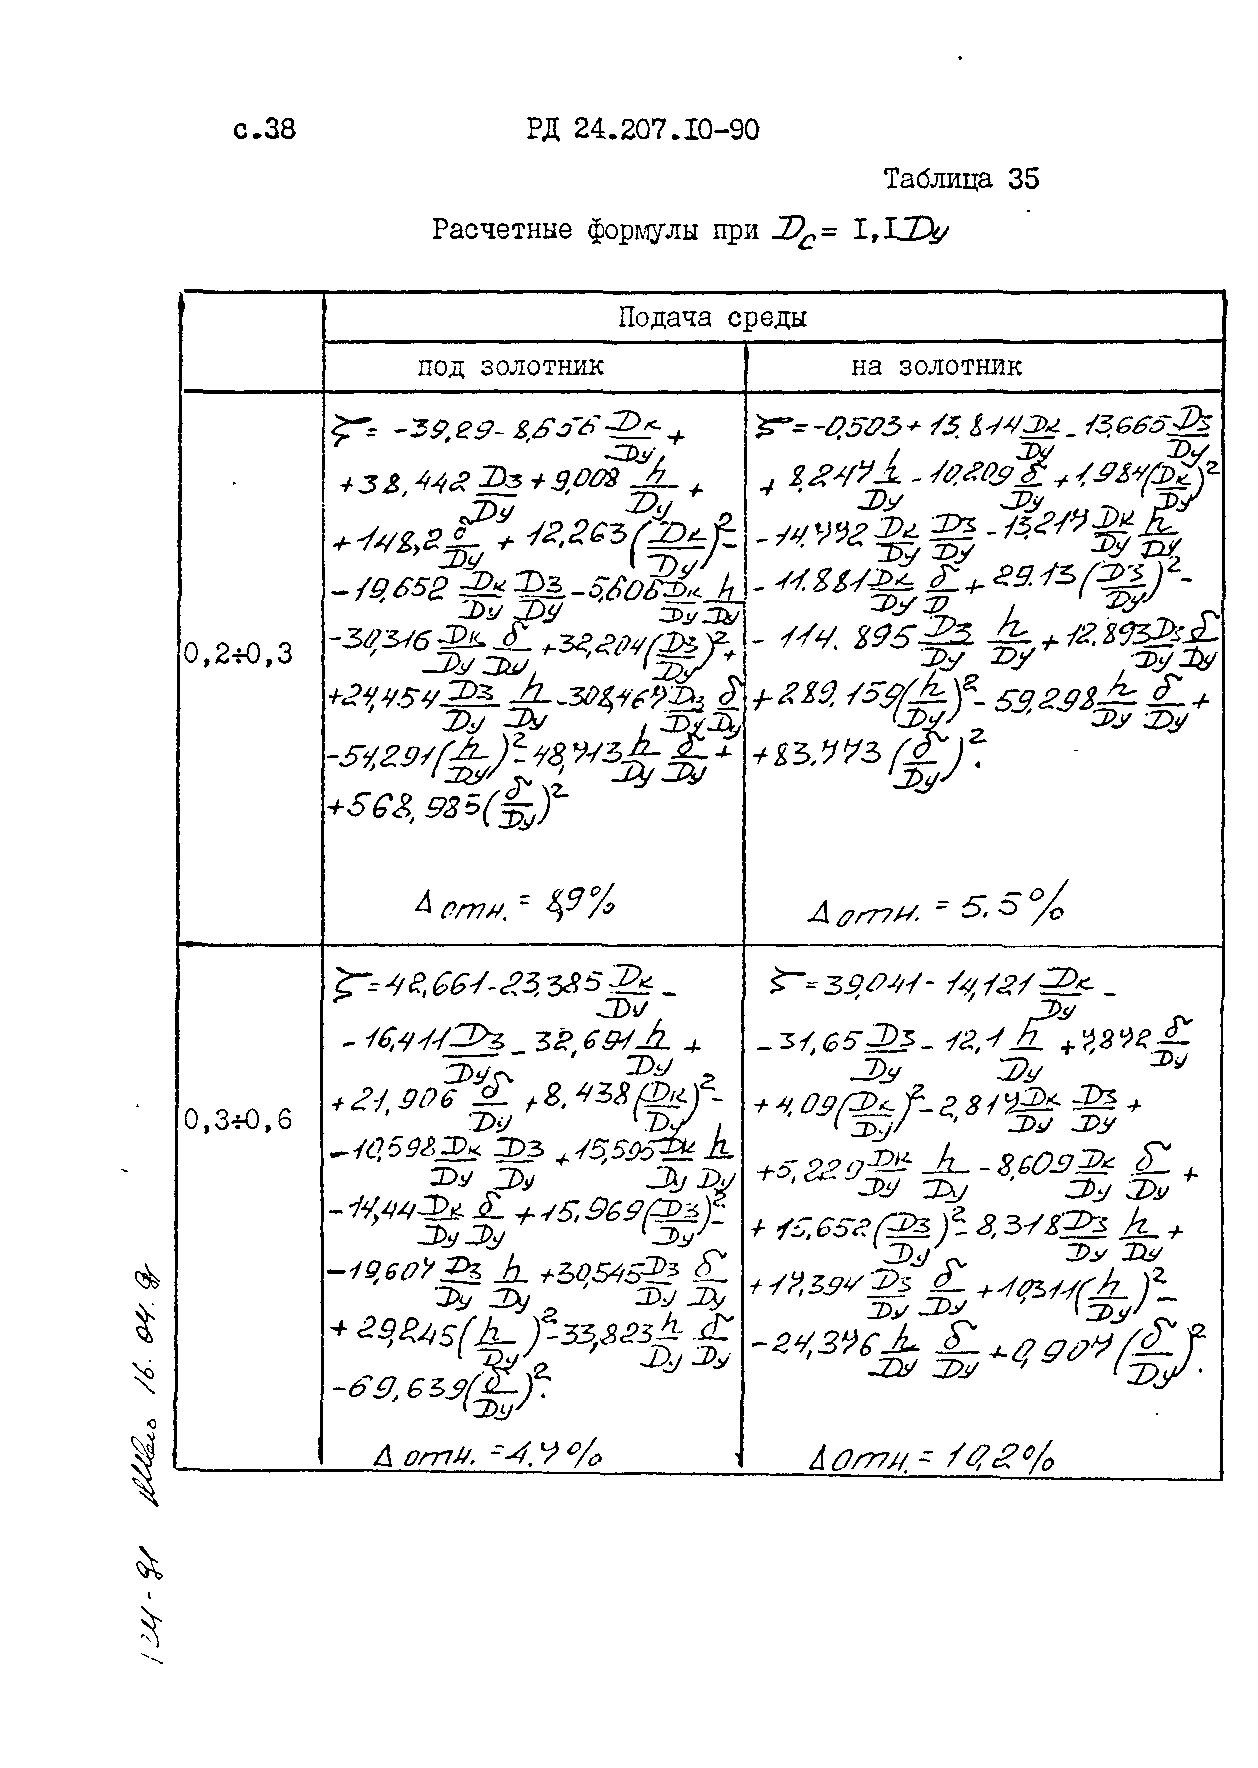 с.38 РД 24.207.10-90
Таблица 35
Расчетные формулы при Dс = 1,1Dу
Подача среды
под золотник
на золотник
0,2÷0,3
ζ = -39,29 - 8,656 Dк/Dу +
+38,442 Dз/Dу + 9,008 h/Dу +
+148,2 δ/Dу + 12,263 (Dк/Dу)² -
-19,652 Dк/Dу Dз/Dу - 5,606 Dк/Dу h/Dу
-30,316 Dк/Dу δ/Dу + 32,204 (Dз/Dу)² +
+24,454 Dз/Dу h/Dу - 308,467 Dз/Dу δ/Dу
-54,291 (h/Dу)² - 48,713 h/Dу δ/Dу +
+568,985 (δ/Dу)²
Δ отн. = 8,9%
ζ = -0,503 + 13.814 Dк/Dу - 13,665 Dз/Dу
+ 8.247 h/Dу - 10,209 δ/Dу + 1,984 (Dк/Dу)²
-14.772 Dк/Dу Dз/Dу - 13,217 Dк/Dу h/Dу
-11.881 Dк/Dу δ/D + 29.13 (Dз/Dу)² -
- 114.895 Dз/Dу h/Dу + 12.893 Dз/Dу δ/Dу
+ 289,159 (h/Dу)² - 59,298 h/Dу δ/Dу +
+83,773 (δ/Dу)².
Δ отн. = 5.5%
0,3÷0,6
ζ = 42,661 - 23,385 Dк/Dу -
- 16,411 Dз/Dу - 32,691 h/Dу +
+21,906 δ/Dу + 8,438 (Dк/Dу)² -
-10,598 Dк/Dу Dз/Dу + 15,595 Dк/Dу h/Dу
-14,44 Dк/Dу δ/Dу + 15,969 (Dз/Dу)² -
-19,607 Dз/Dу h/Dу + 30,545 Dз/Dу δ/Dу
+ 29,245 (h/Dу)² - 33,823 h/Dу δ/Dу
-69,639 (δ/Dу)².
Δ отн. = 4.7%
ζ = 39,041 - 14,121 Dк/Dу -
-31,65 Dз/Dу - 12,1 h/Dу + 7,872 δ/Dу
+4,09 (Dк/Dу)² - 2,817 Dк/Dу Dз/Dу +
+5,229 Dк/Dу h/Dу - 8,609 Dк/Dу δ/Dу +
+ 15,652 (Dз/Dу)² - 8,318 Dз/Dу h/Dу +
+17,394 Dз/Dу δ/Dу + 10,311 (h/Dу)² -
-24,376 h/Dу δ/Dу + 0,907 (δ/Dу)².
Δ отн. = 10,2%
16.04.91